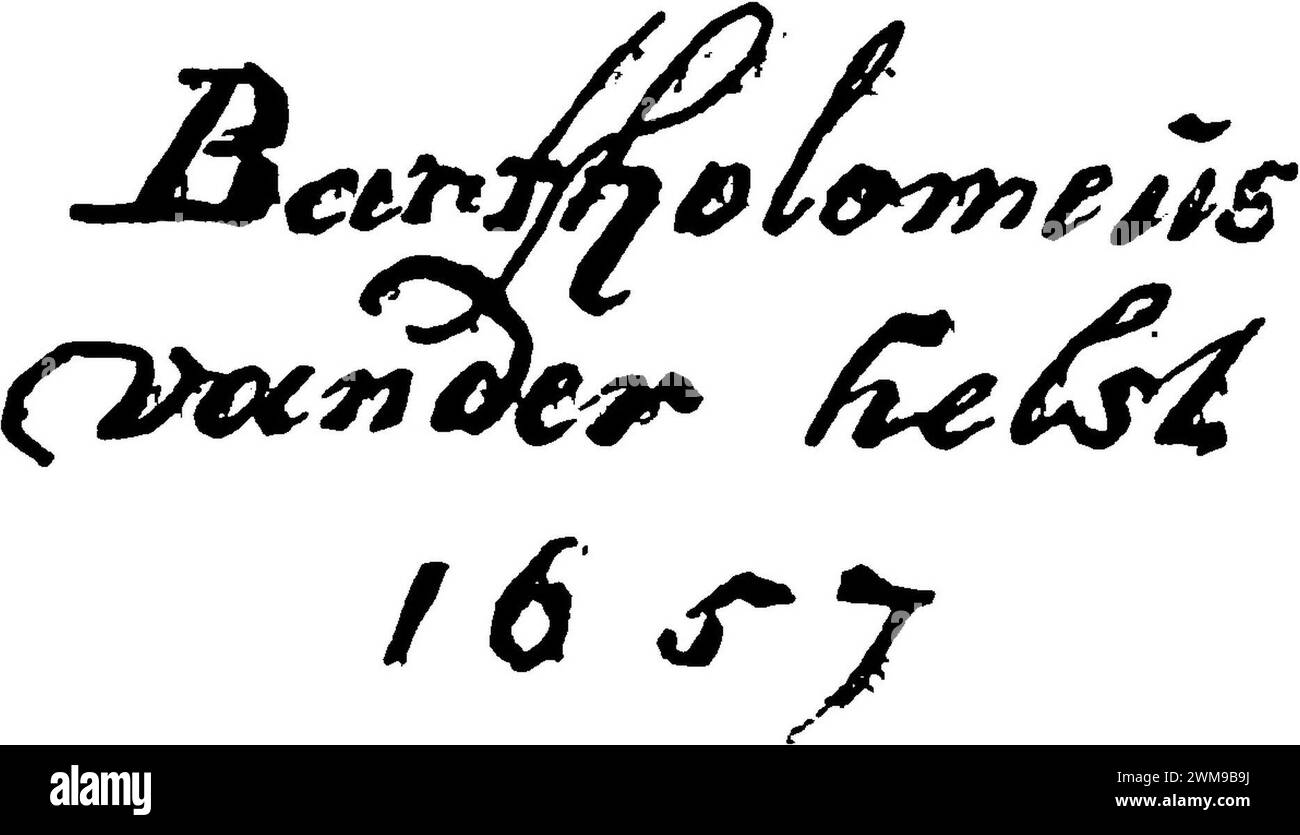 Bartholomeus
vander helst
1657
alamy
Image ID: 2WM9B9J
www.alamy.com